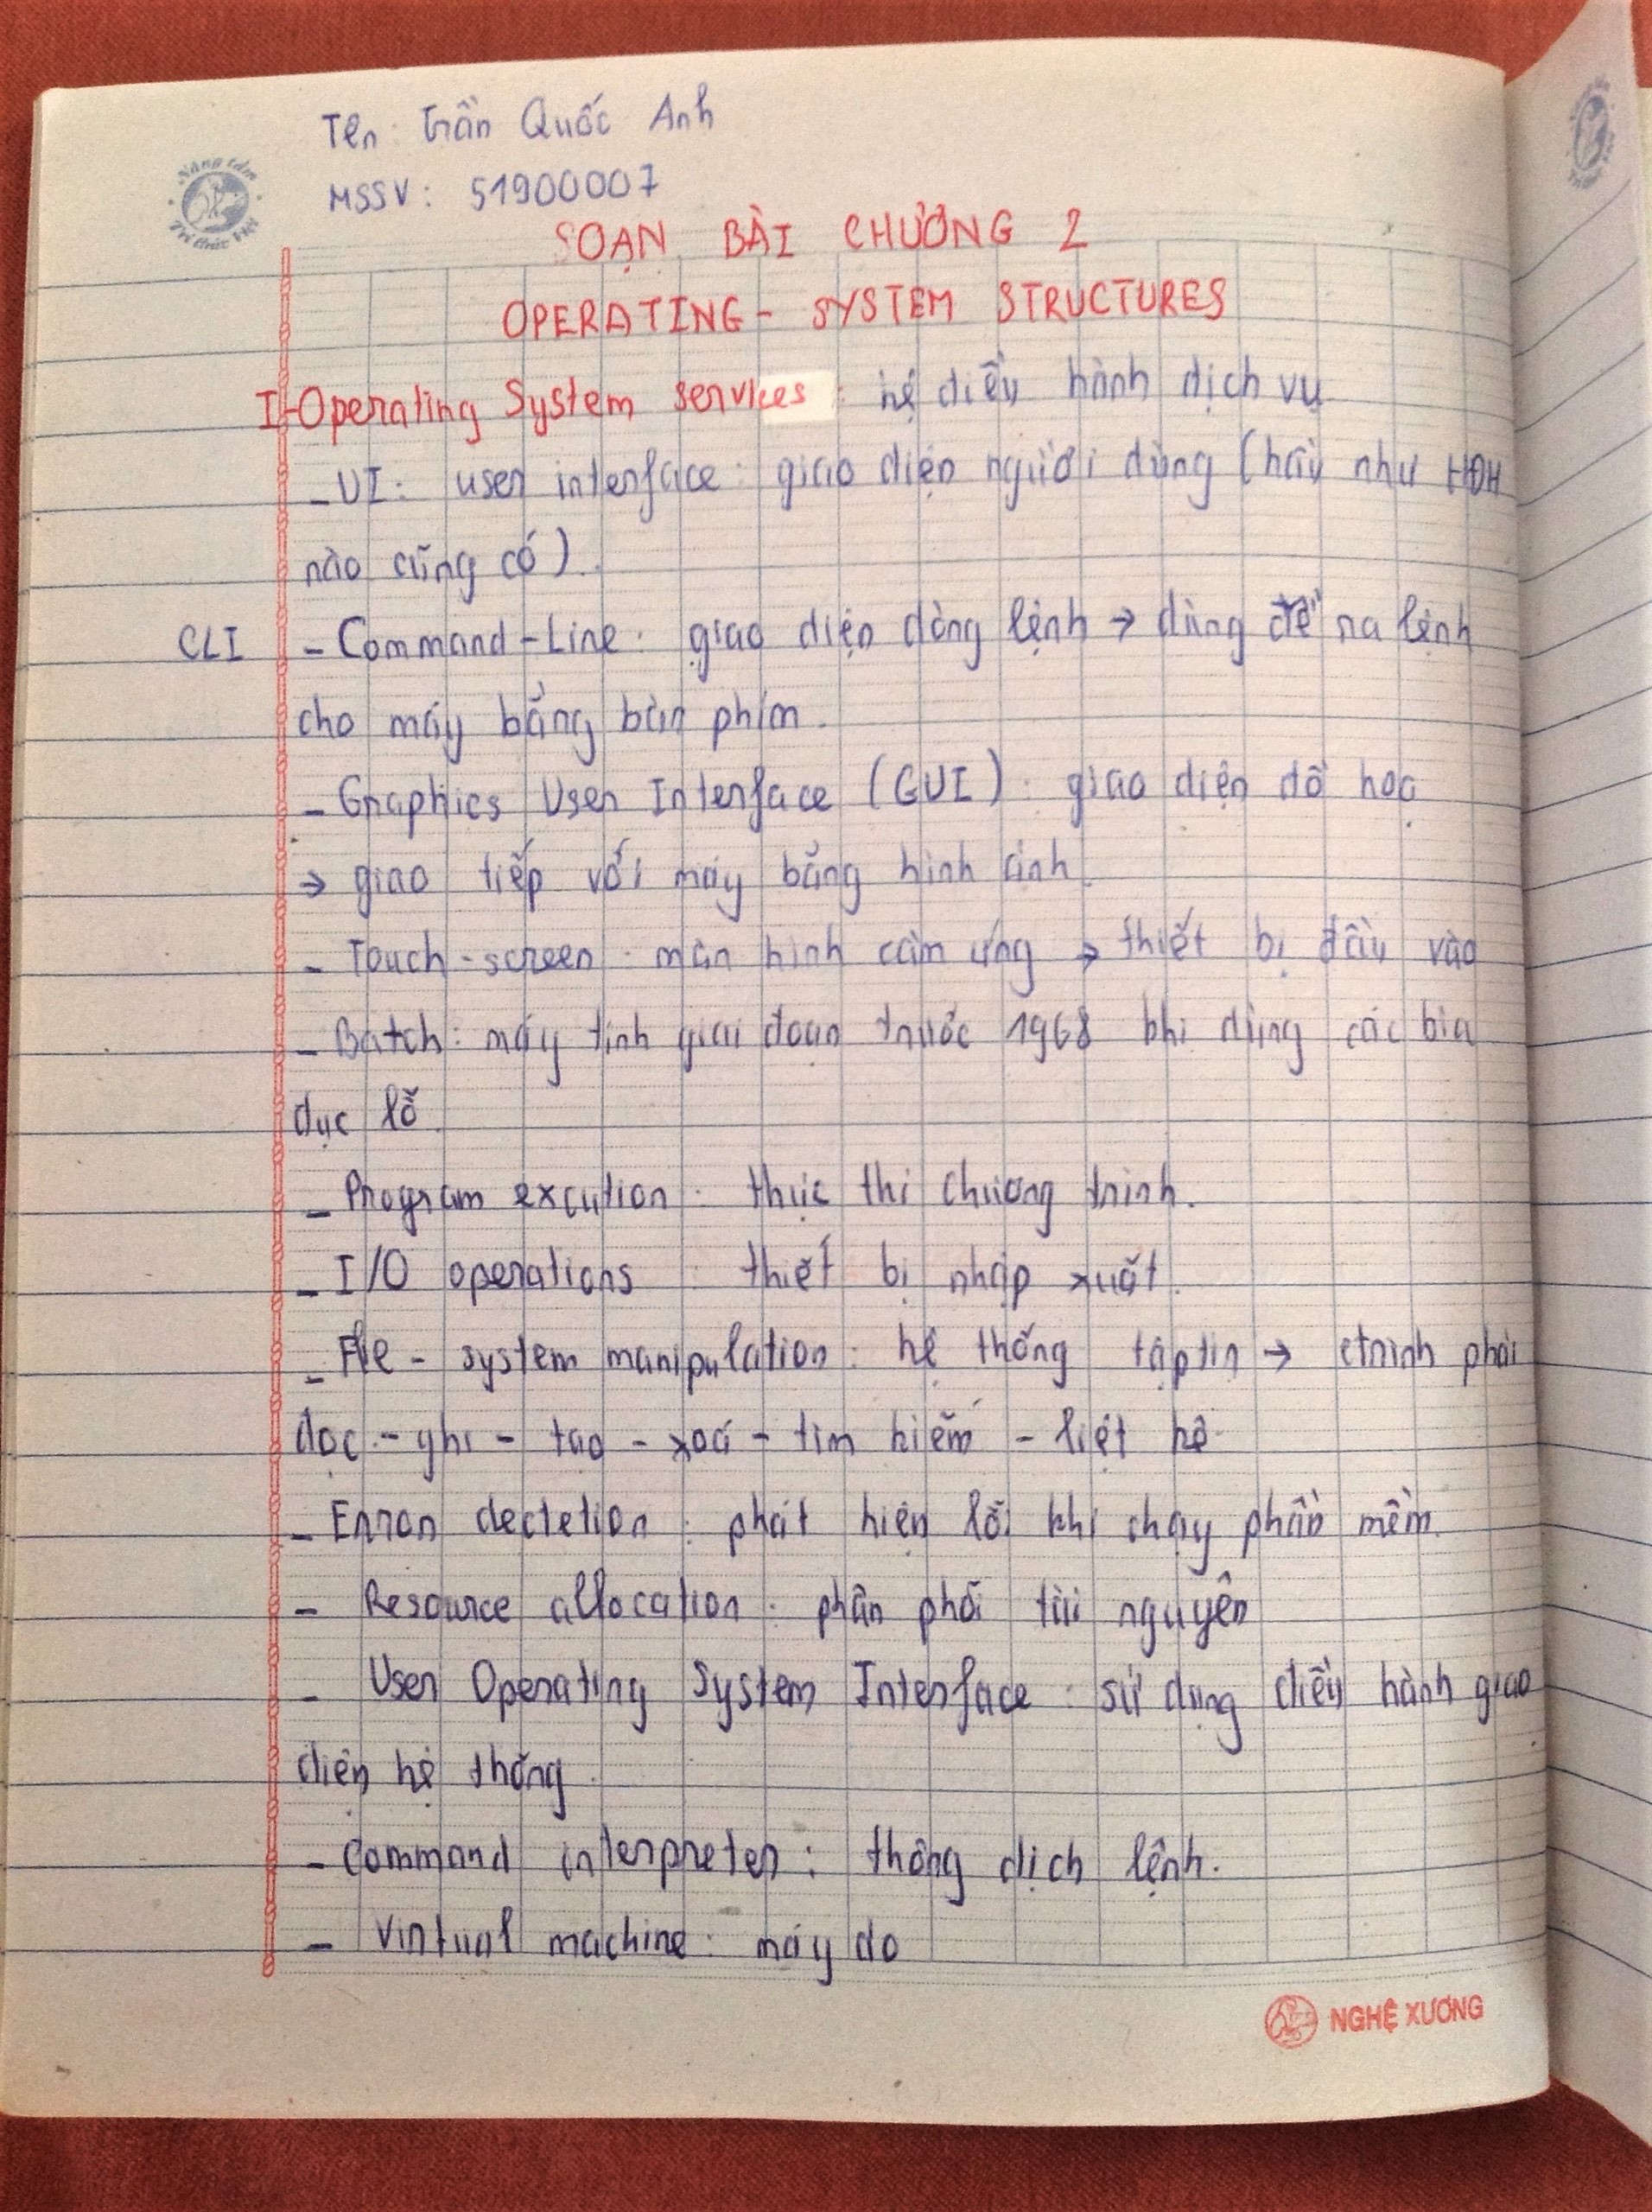 Tên: Trần Quốc Anh
MSSV: 51900007
Nâng tầm
Tri thức Việt
SOẠN BÀI CHƯƠNG 2
OPERATING - SYSTEM STRUCTURES
I-Operating System services: hệ điều hành dịch vụ
- UI: user interface: giao diện người dùng (hầu như HĐH
nào cũng có).
CLI - Command-Line: giao diện dòng lệnh → dùng để ra lệnh
cho máy bằng bàn phím.
- Graphics User Interface (GUI): giao diện đồ họa
→ giao tiếp với máy bằng hình ảnh.
- Touch-screen: màn hình cảm ứng → thiết bị đầu vào
- Batch: máy tính giai đoạn trước 1968 khi dùng các bìa
đục lỗ.
- Program excution: thực thi chương trình.
- I/O operations: thiết bị nhập xuất.
- File - system manipulation: hệ thống tập tin → ctrình phải
đọc - ghi - tạo - xoá - tìm kiếm - liệt kê
- Error dectetion: phát hiện lỗi khi chạy phần mềm.
- Resource allocation: phân phối tài nguyên
- User Operating System Interface: sử dụng điều hành giao
diện hệ thống.
- Command interpreter: thông dịch lệnh.
- Virtual machine: máy ảo
NGHỆ XƯƠNG